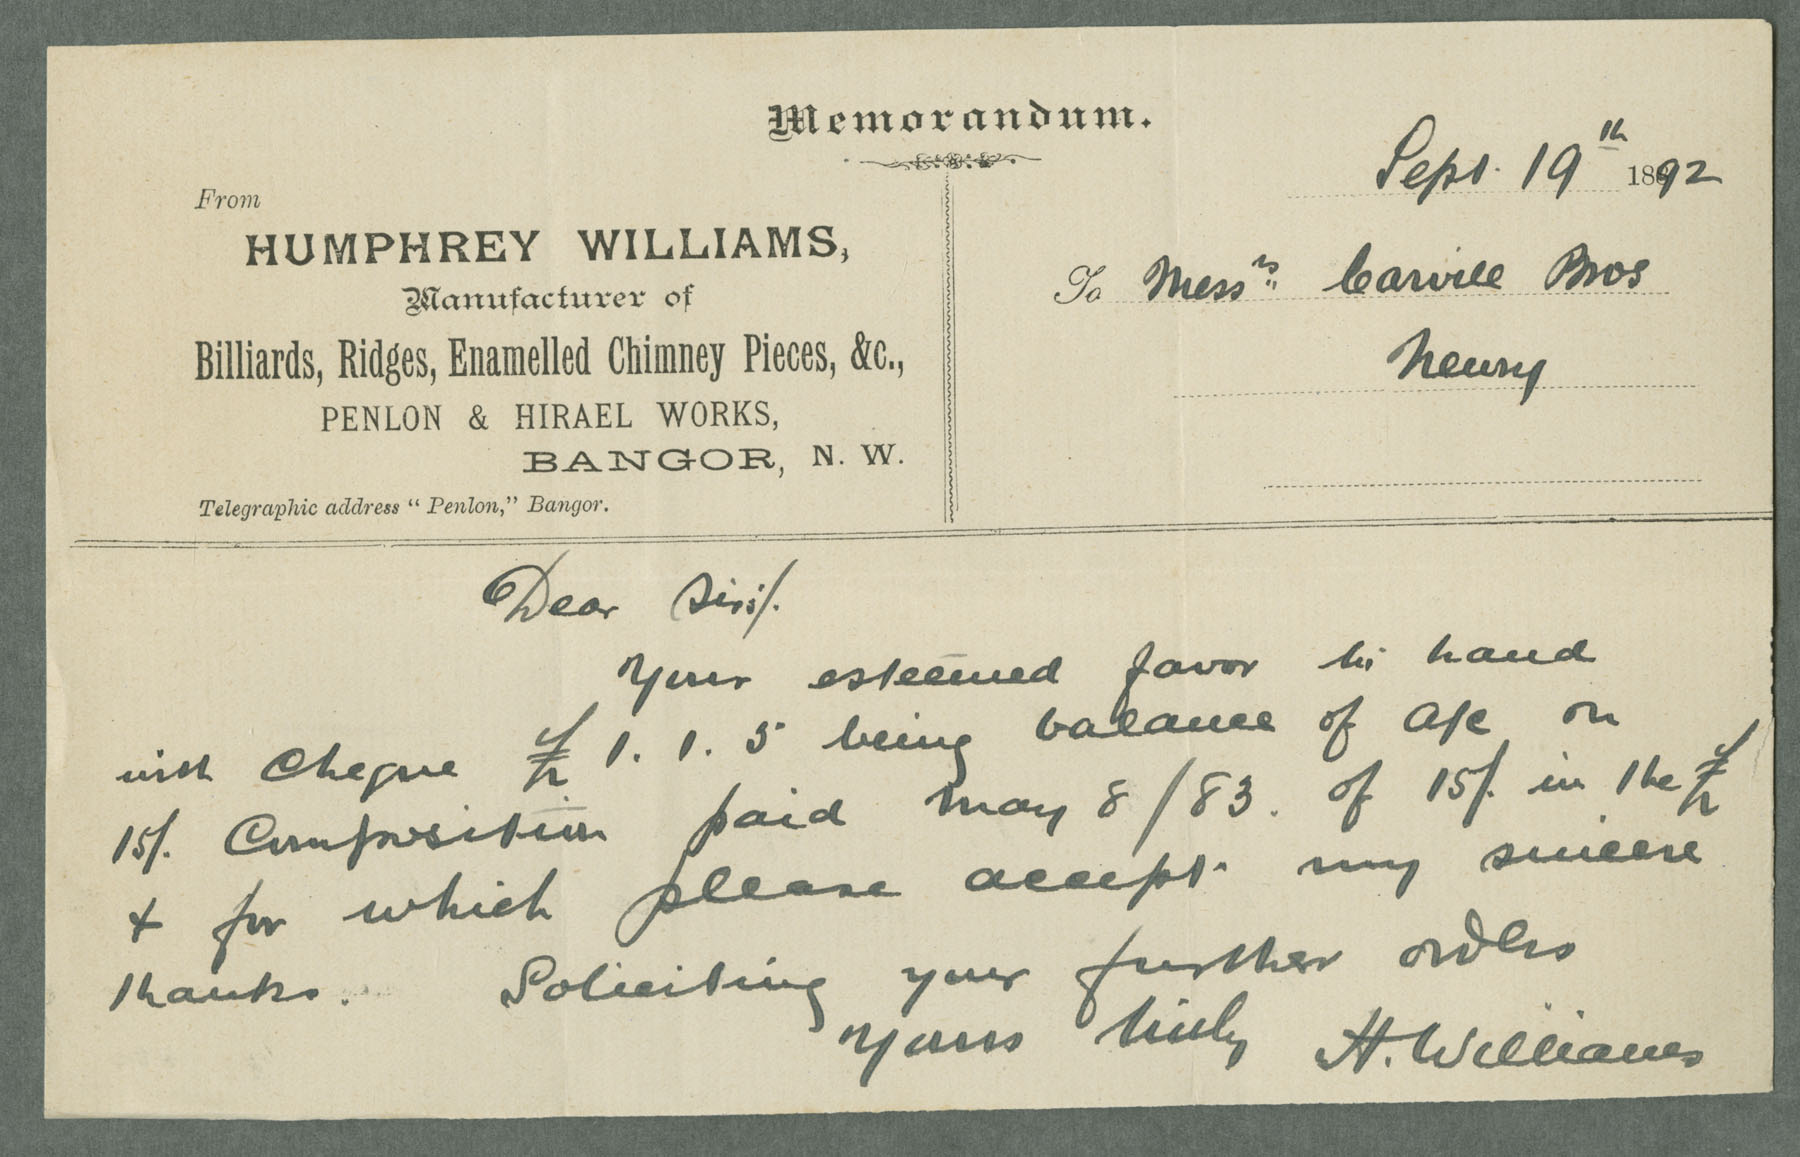 Memorandum.
Sept. 19th 1892
From
HUMPHREY WILLIAMS,
Manufacturer of
Billiards, Ridges, Enamelled Chimney Pieces, &c.,
PENLON & HIRAEL WORKS,
BANGOR, N. W.
Telegraphic address "Penlon," Bangor.
To Messrs. Carvill Bros
Newry
Dear Sirs/.
Your esteemed favor in hand
with Cheque £1. 1. 5 being balance of a/c on
15/. Composition paid May 8/83. of 15/. in the £
& for which please accept my sincere
thanks. Soliciting your further orders
Yours truly H. Williams